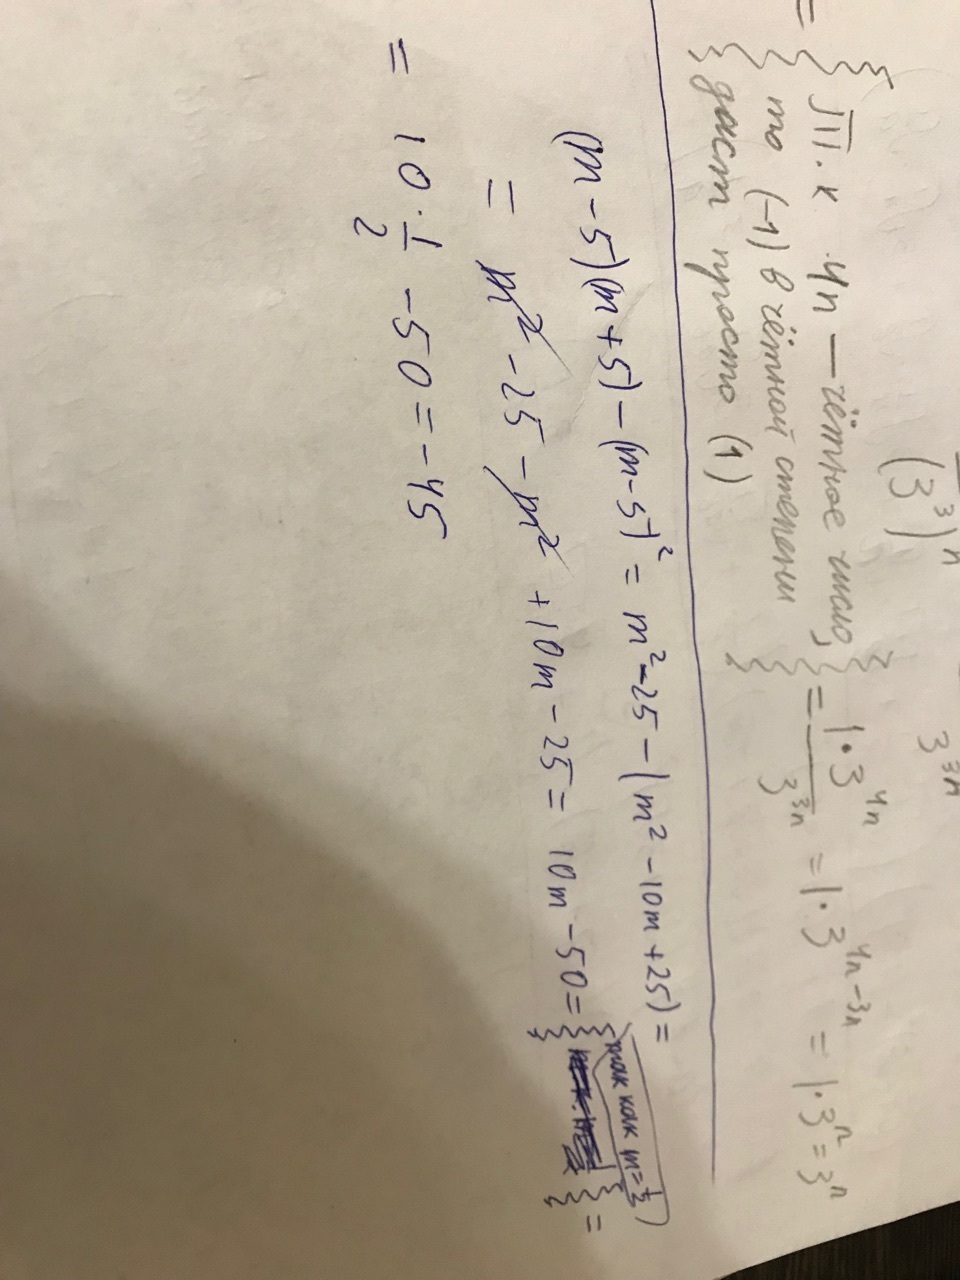 3³ⁿ
(3³)ⁿ
= { т.к 4n — чётное число, то (-1) в чётной степени даст просто (1) } = 1·3⁴ⁿ / 3³ⁿ = 1·3⁴ⁿ⁻³ⁿ = 1·3ⁿ = 3ⁿ
(m - 5)(m + 5) - (m - 5)² = m² - 25 - (m² - 10m + 25) =
= m² - 25 - m² + 10m - 25 = 10m - 50 = { так как m = 1/2 } =
= 10 · 1/2 - 50 = -45